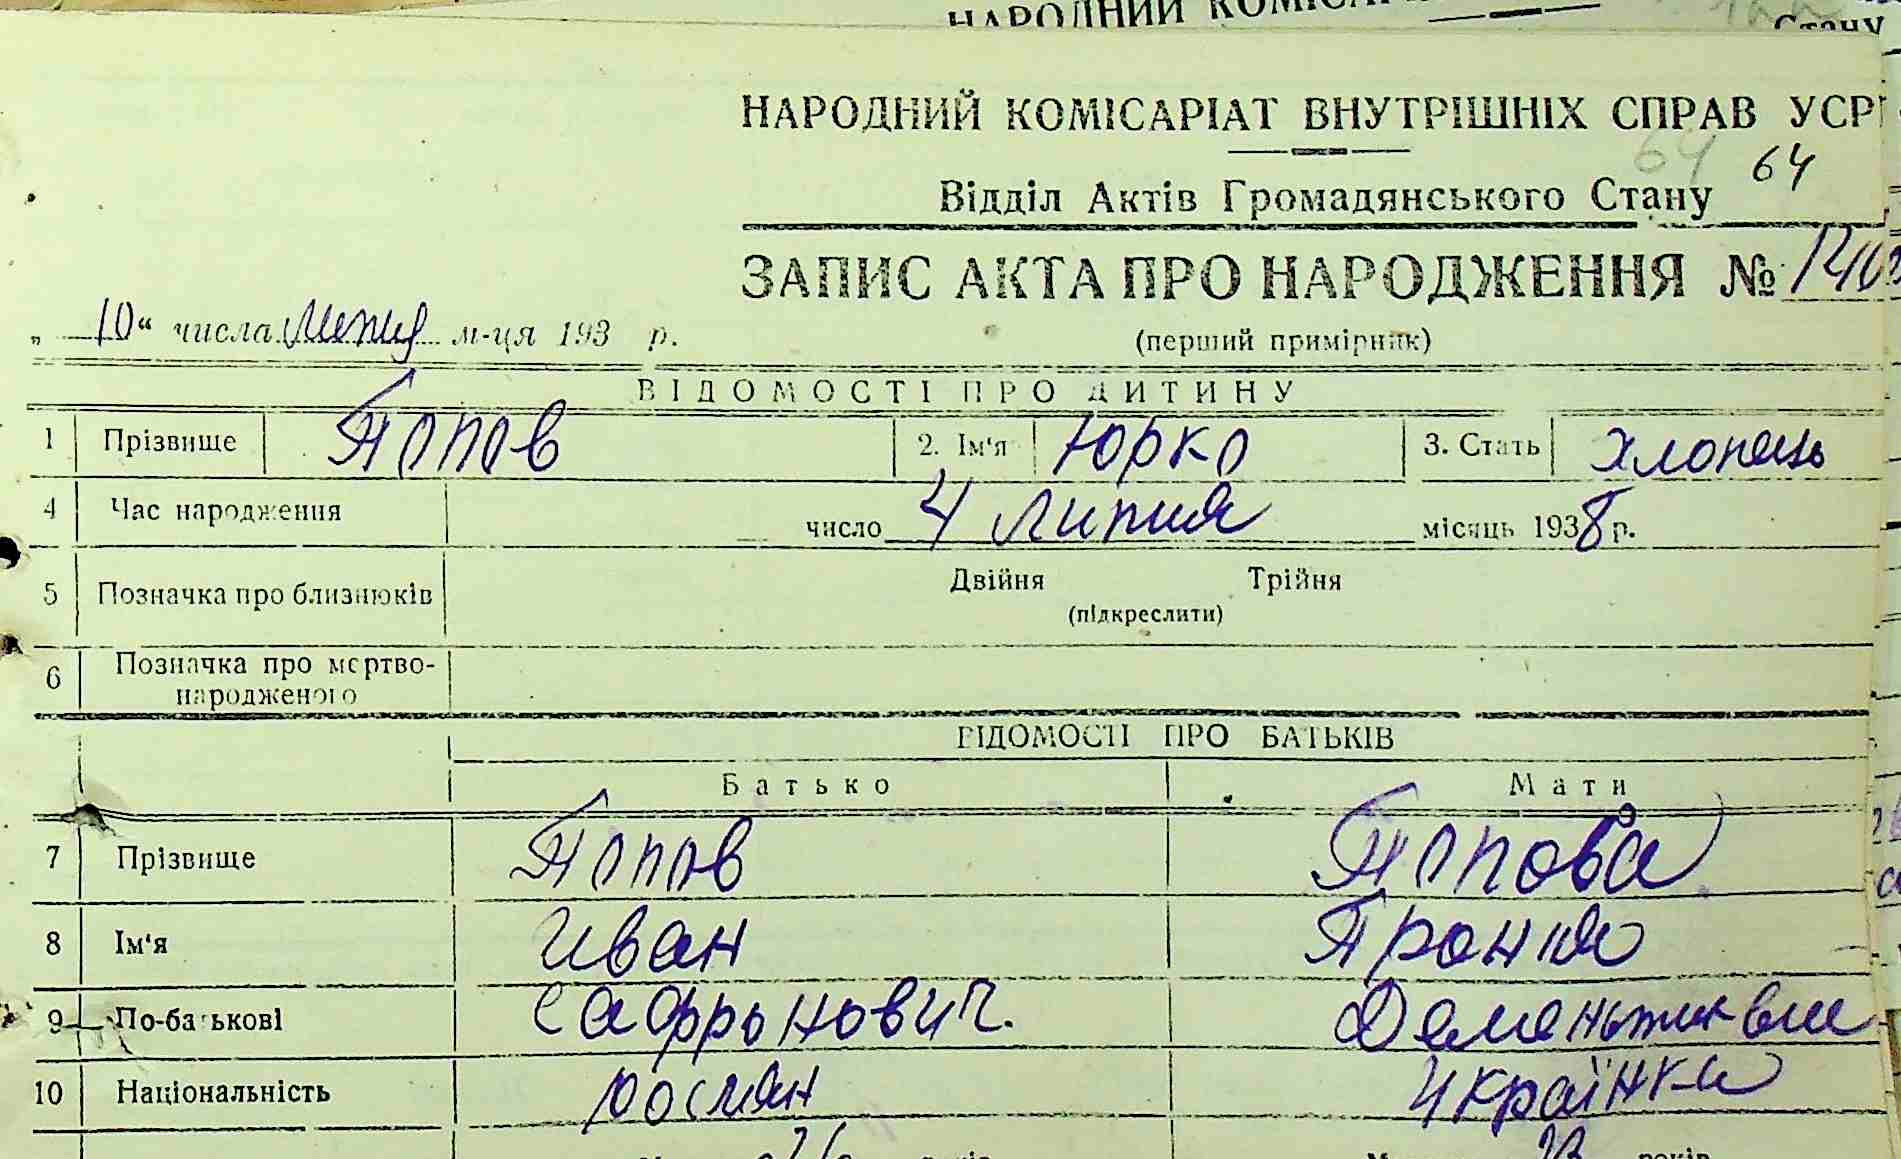 НАРОДНИЙ
Стану
НАРОДНИЙ КОМІСАРІАТ ВНУТРІШНІХ СПРАВ УСРР
64 64
Відділ Актів Громадянського Стану
ЗАПИС АКТА ПРО НАРОДЖЕННЯ №
„ 10 “ числа липня м-ця 193 р.
(перший примірник)
ВІДОМОСТІ ПРО ДИТИНУ
1 Прізвище Попов 2. Ім‘я Юрко 3. Стать хлопець
4 Час народження число 4 липня місяць 1938 р.
5 Позначка про близнюків Двійня Трійня
(підкреслити)
6 Позначка про мертво-
народженого
ВІДОМОСТІ ПРО БАТЬКІВ
Батько Мати
7 Прізвище Попов Попова
8 Ім‘я Иван Пронія
9 По-батькові Сафронович.
10 Національність росиян українка